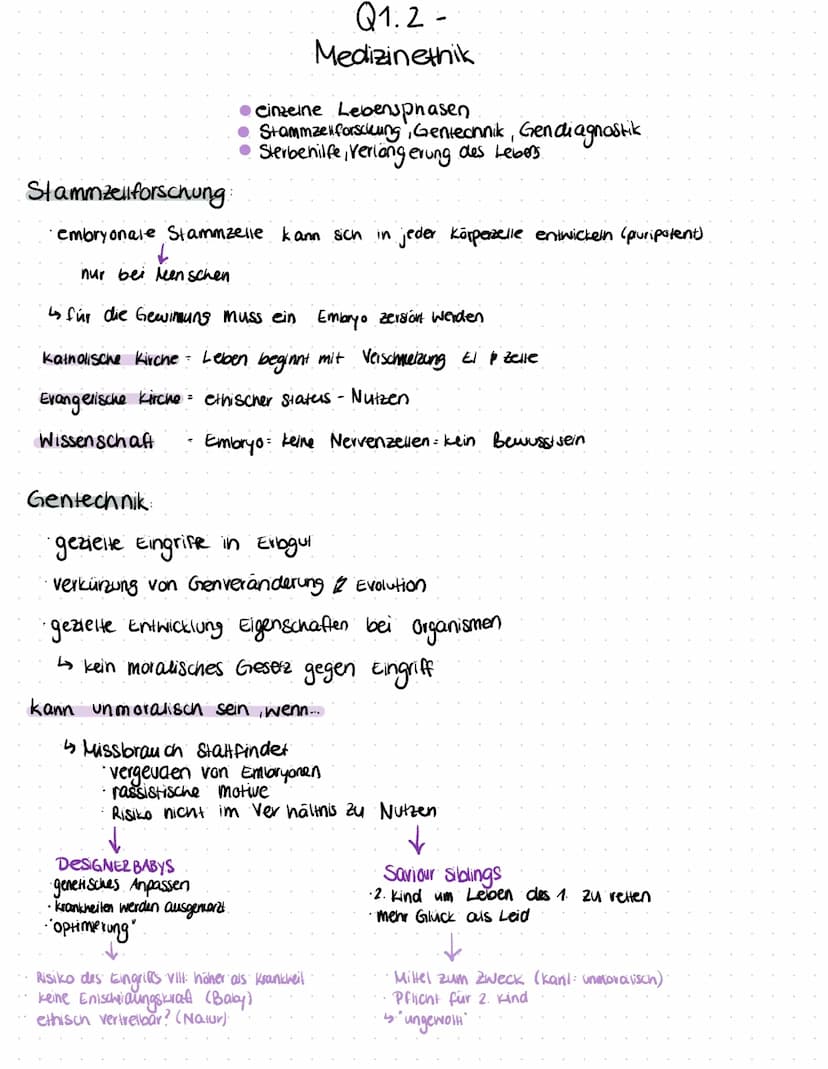 Q1.2 -
Medizinethik
• einzelne Lebensphasen
• Stammzellforschung, Gentechnik, Gendiagnostik
• Sterbehilfe, Verlängerung des Lebens
Stammzellforschung:
· embryonale Stammzelle kann sch in jeder Körperzelle entwickeln (puripotent)
↓
nur bei Menschen
↳ für die Gewinnung muss ein Embryo zerstört werden
Katholische Kirche = Leben beginnt mit Verschmelzung Ei & Zelle
Evangelische Kirche = ethischer Status - Nutzen
Wissenschaft - Embryo = keine Nervenzellen = kein Bewusstsein
Gentechnik:
· gezielte Eingriffe in Erbgut
· verkürzung von Genveränderung & Evolution
· gezielte Entwicklung Eigenschaften bei Organismen
↳ kein moralisches Gesetz gegen Eingriff
kann unmoralisch sein, wenn...
↳ Missbrauch stattfindet
· vergeuden von Embryonen
· rassistische Motive
· Risiko nicht im Verhältnis zu Nutzen
↓ ↓
DESIGNERBABYS
· genetisches Anpassen
· Krankheiten werden ausgemerzt
· "optimerung"
↓
· Risiko des Eingriffs vllt. höher als Krankheit
· keine Entscheidungskraft (Baby)
· ethisch vertretbar? (Natur)
Saviour Siblings
· 2. Kind um Leben des 1. zu retten
· mehr Glück als Leid
↓
· Mittel zum Zweck (Kant: unmoralisch)
· Pflicht für 2. Kind
↳ "ungewollt"